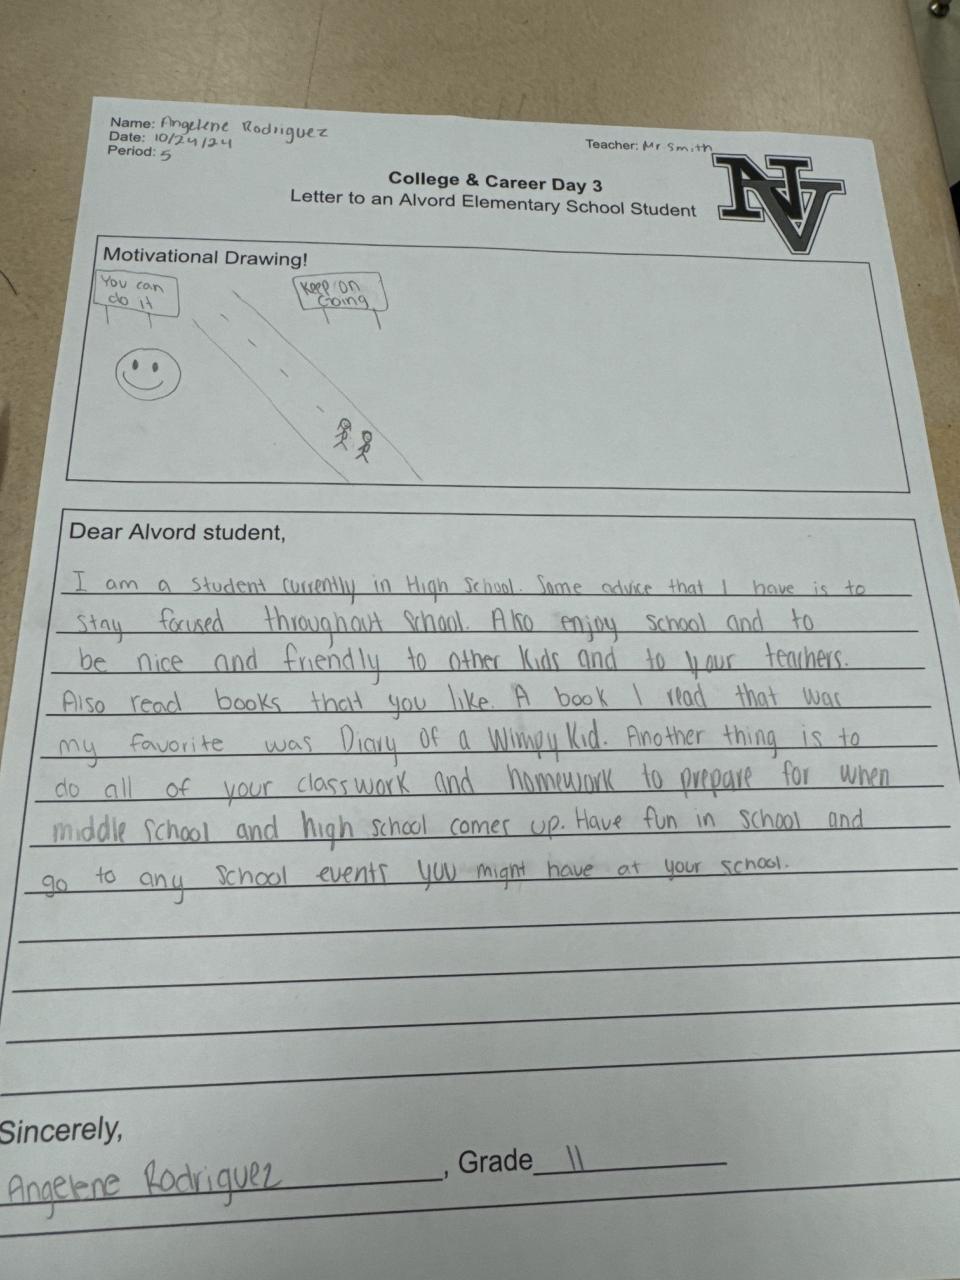 Name: Angelene Rodriguez
Date: 10/24/24
Period: 5
Teacher: Mr. Smith
NV
College & Career Day 3
Letter to an Alvord Elementary School Student
Motivational Drawing!
You can
do it
Keep on
Going
Dear Alvord student,
I am a student currently in High School. Some advice that I have is to
stay focused throughout school. Also enjoy school and to
be nice and friendly to other kids and to your teachers.
Also read books that you like. A book I read that was
my favorite was Diary of a Wimpy Kid. Another thing is to
do all of your classwork and homework to prepare for when
middle school and high school comes up. Have fun in school and
go to any school events you might have at your school.
Sincerely,
Angelene Rodriguez, Grade 11